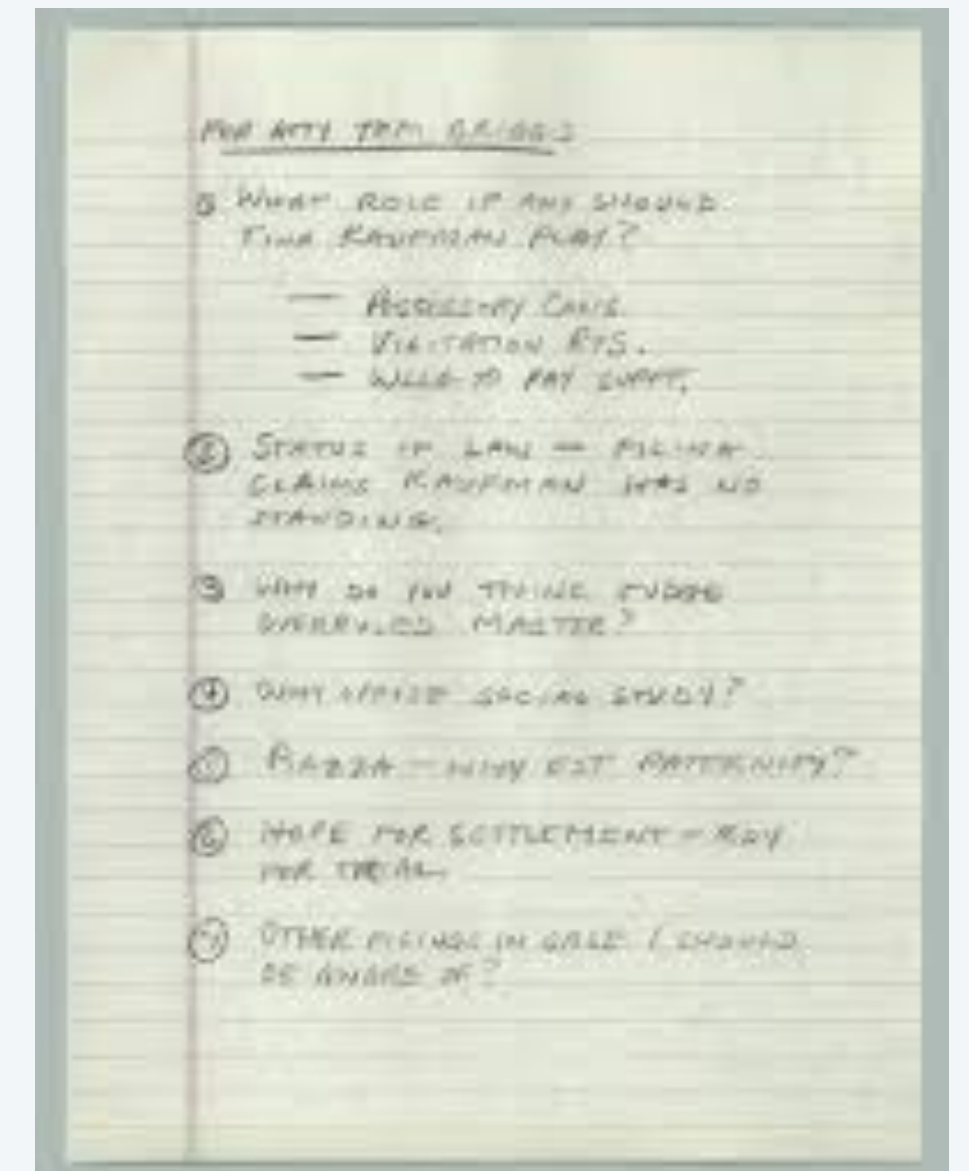 FOR ATTY TOM BRIGGS
① WHAT ROLE IF ANY SHOULD
TINA KAUFMAN PLAY?
— VISITATION RTS.
— TO PAY SUPPT.
② STATUS OF LAW — FILING
CLAIMS KAUFMAN HAS NO
STANDING.
③ WHY DO YOU THINK JUDGE
OVERRULED MASTER?
④ WHY SOCIAL STUDY?
⑤ PIAZZA — WHY EST PATERNITY?
⑥ HOPE FOR SETTLEMENT — RDY
FOR TRIAL.
⑦ OTHER FILINGS IN CASE I SHOULD
BE AWARE OF?